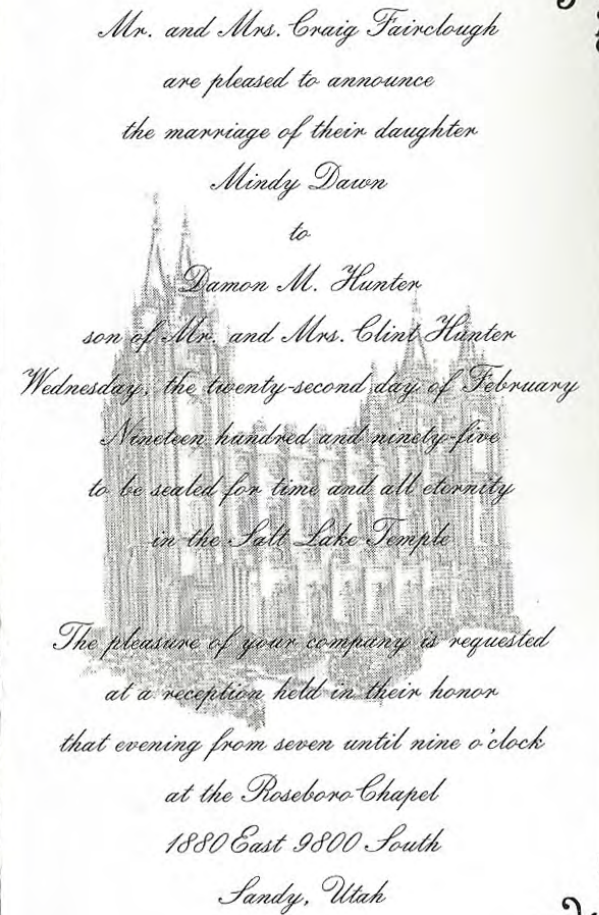 Mr. and Mrs. Craig Fairclough
are pleased to announce
the marriage of their daughter
Mindy Dawn
to
Damon M. Hunter
son of Mr. and Mrs. Clint Hunter
Wednesday, the twenty-second day of February
Nineteen hundred and ninety-five
to be sealed for time and all eternity
in the Salt Lake Temple
The pleasure of your company is requested
at a reception held in their honor
that evening from seven until nine o'clock
at the Roseboro Chapel
1880 East 9800 South
Sandy, Utah